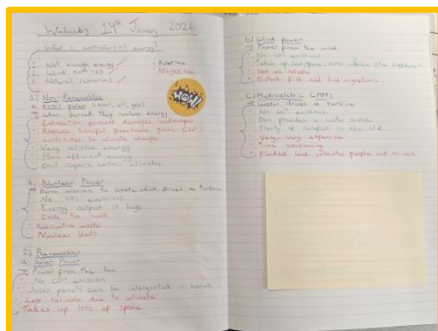 Wednesday 14th January 2026
What is controversial energy?
1. Not enough energy
2. Wind turbines
3. Natural resources
Positive
Negatives
WOW!
1) Non-Renewables
a. Fossil fuels (coal, oil, gas)
When burned they release energy
Extraction process damages landscapes
Produce harmful greenhouse gases (CO²)
contributes to climate change
Very reliable energy
More efficient energy
Don't require certain climates
b. Nuclear Power
uranium to create which drives a turbine
No CO² emissions
Energy output is huge
Costs too much
Radioactive waste
Nuclear
2) Renewables
a. Solar Power
Power from the Sun
No CO² emission
Solar panels can be integrated in homes
Less reliable due to climate
Takes up lots of space
b) Wind power
Power from the wind
No CO² emissions
Takes up less space,
Not as reliable
Disturb fish and bird migrations
c) Hydroelectric (HEP)
Water drives a turbine
No CO² emissions
Dam provides a water source
Plenty of rainfall in the UK
Very, very expensive
Time consuming
Flooded land relocates people and animals